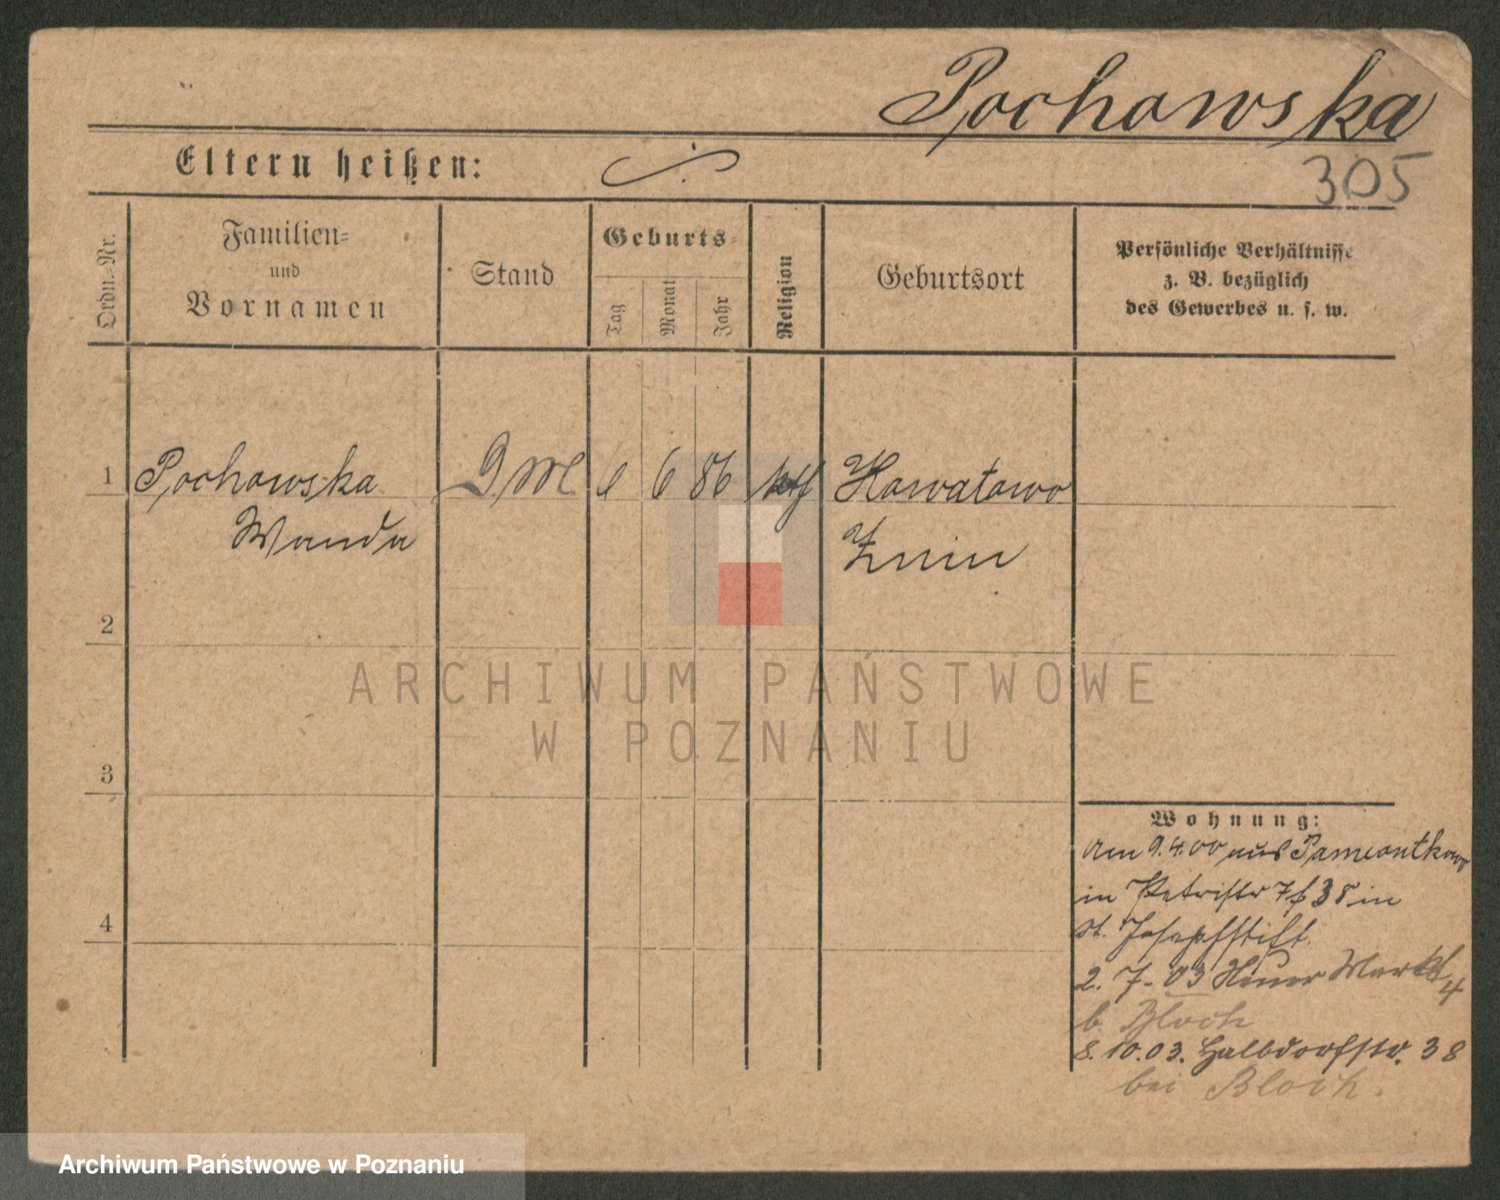 Pochowska
305
Eltern heißen:
Ordn.-Nr.
Familien-
und
Vornamen
Stand
Geburts-
Tag
Monat
Jahr
Religion
Geburtsort
Persönliche Verhältnisse
z. B. bezüglich
des Gewerbes u. s. w.
1 Pochowska D.M. 6 86 kath Howatowo
Wanda Znin
2
ARCHIWUM PAŃSTWOWE
W POZNANIU
3
Wohnung:
Am 9.4.00 aus
in Petristr 7 in
4
St. Josephstift
2. 7. 03 Neuer Markt 4
b. Bloch
8. 10. 03. Halbdorfstr. 38
bei Bloch.
Archiwum Państwowe w Poznaniu